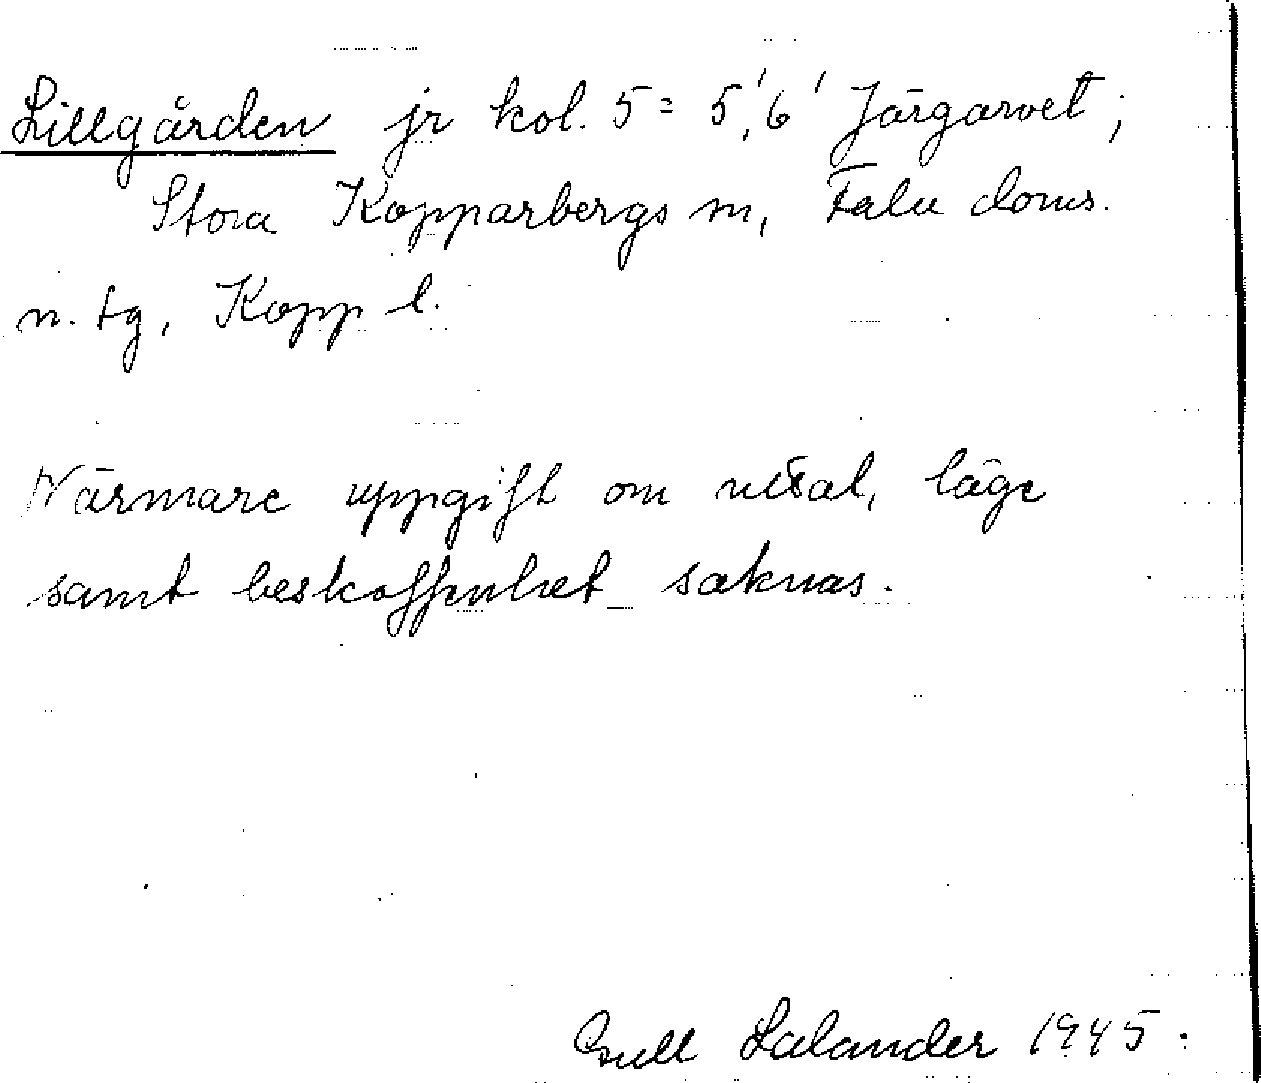 Lillgården jr kol. 5 = 5',6' Järgarvet;
Stora Kopparbergs sn, Falu doms.
n. tg, Kopp l.
Närmare uppgift om uttal, läge
samt beskaffenhet saknas.
Gull Lalander 1945.